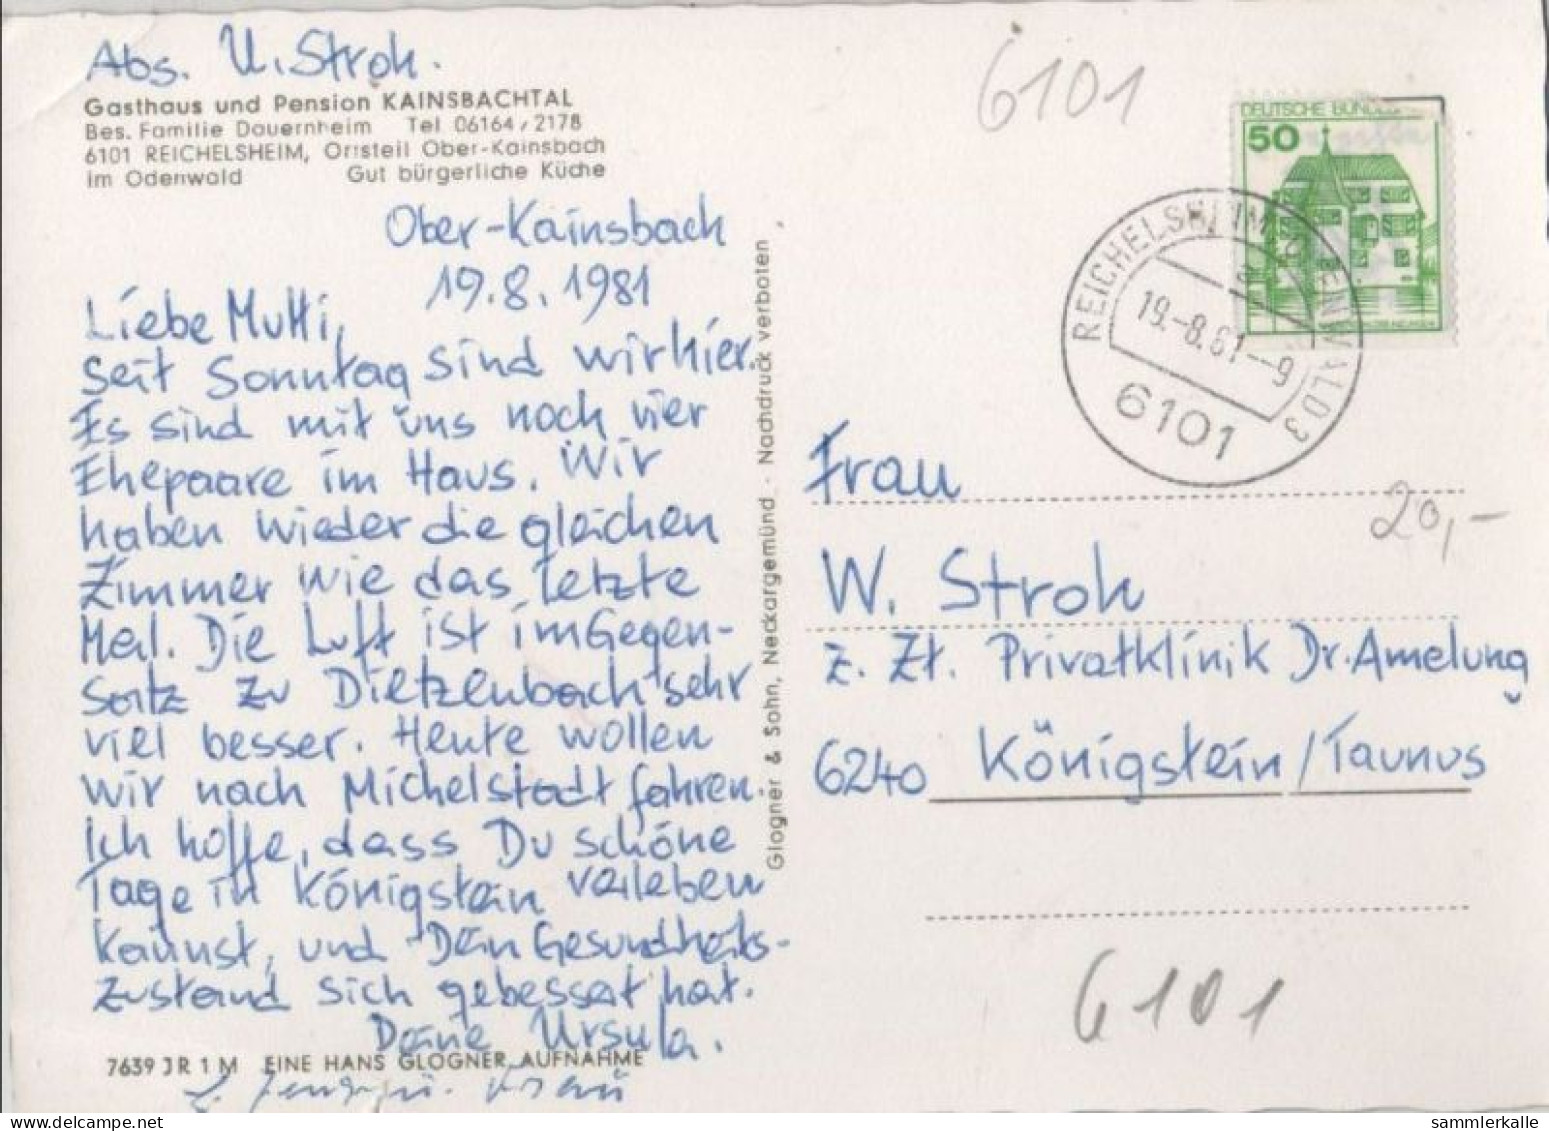 Abs. U. Stroh.
Gasthaus und Pension KAINSBACHTAL
Bes. Familie Dauernheim Tel 06164/2178
6101 REICHELSHEIM, Ortsteil Ober-Kainsbach
im Odenwald Gut bürgerliche Küche
Ober-Kainsbach
19.8.1981
Liebe Mutti,
seit Sonntag sind wir hier.
Es sind mit uns noch vier
Ehepaare im Haus. Wir
haben wieder die gleichen
Zimmer wie das letzte
Mal. Die Luft ist im Gegen-
satz zu Dietzenbach sehr
viel besser. Heute wollen
wir nach Michelstadt fahren.
Ich hoffe, dass Du schöne
Tage in Königstein verleben
kannst, und Dein Gesundheits-
zustand sich gebessert hat.
Deine Ursula.
7639 JR 1 M EINE HANS GLOGNER AUFNAHME
Glogner & Sohn, Neckargemünd · Nachdruck verboten
6101
DEUTSCHE BUNDES
50
REICHELSHEIM ODENWALD 3
19.-8.81--9
6101
Frau
20,-
W. Stroh
z. Zt. Privatklinik Dr. Amelung
6240 Königstein/Taunus
6101
sammlerkalle